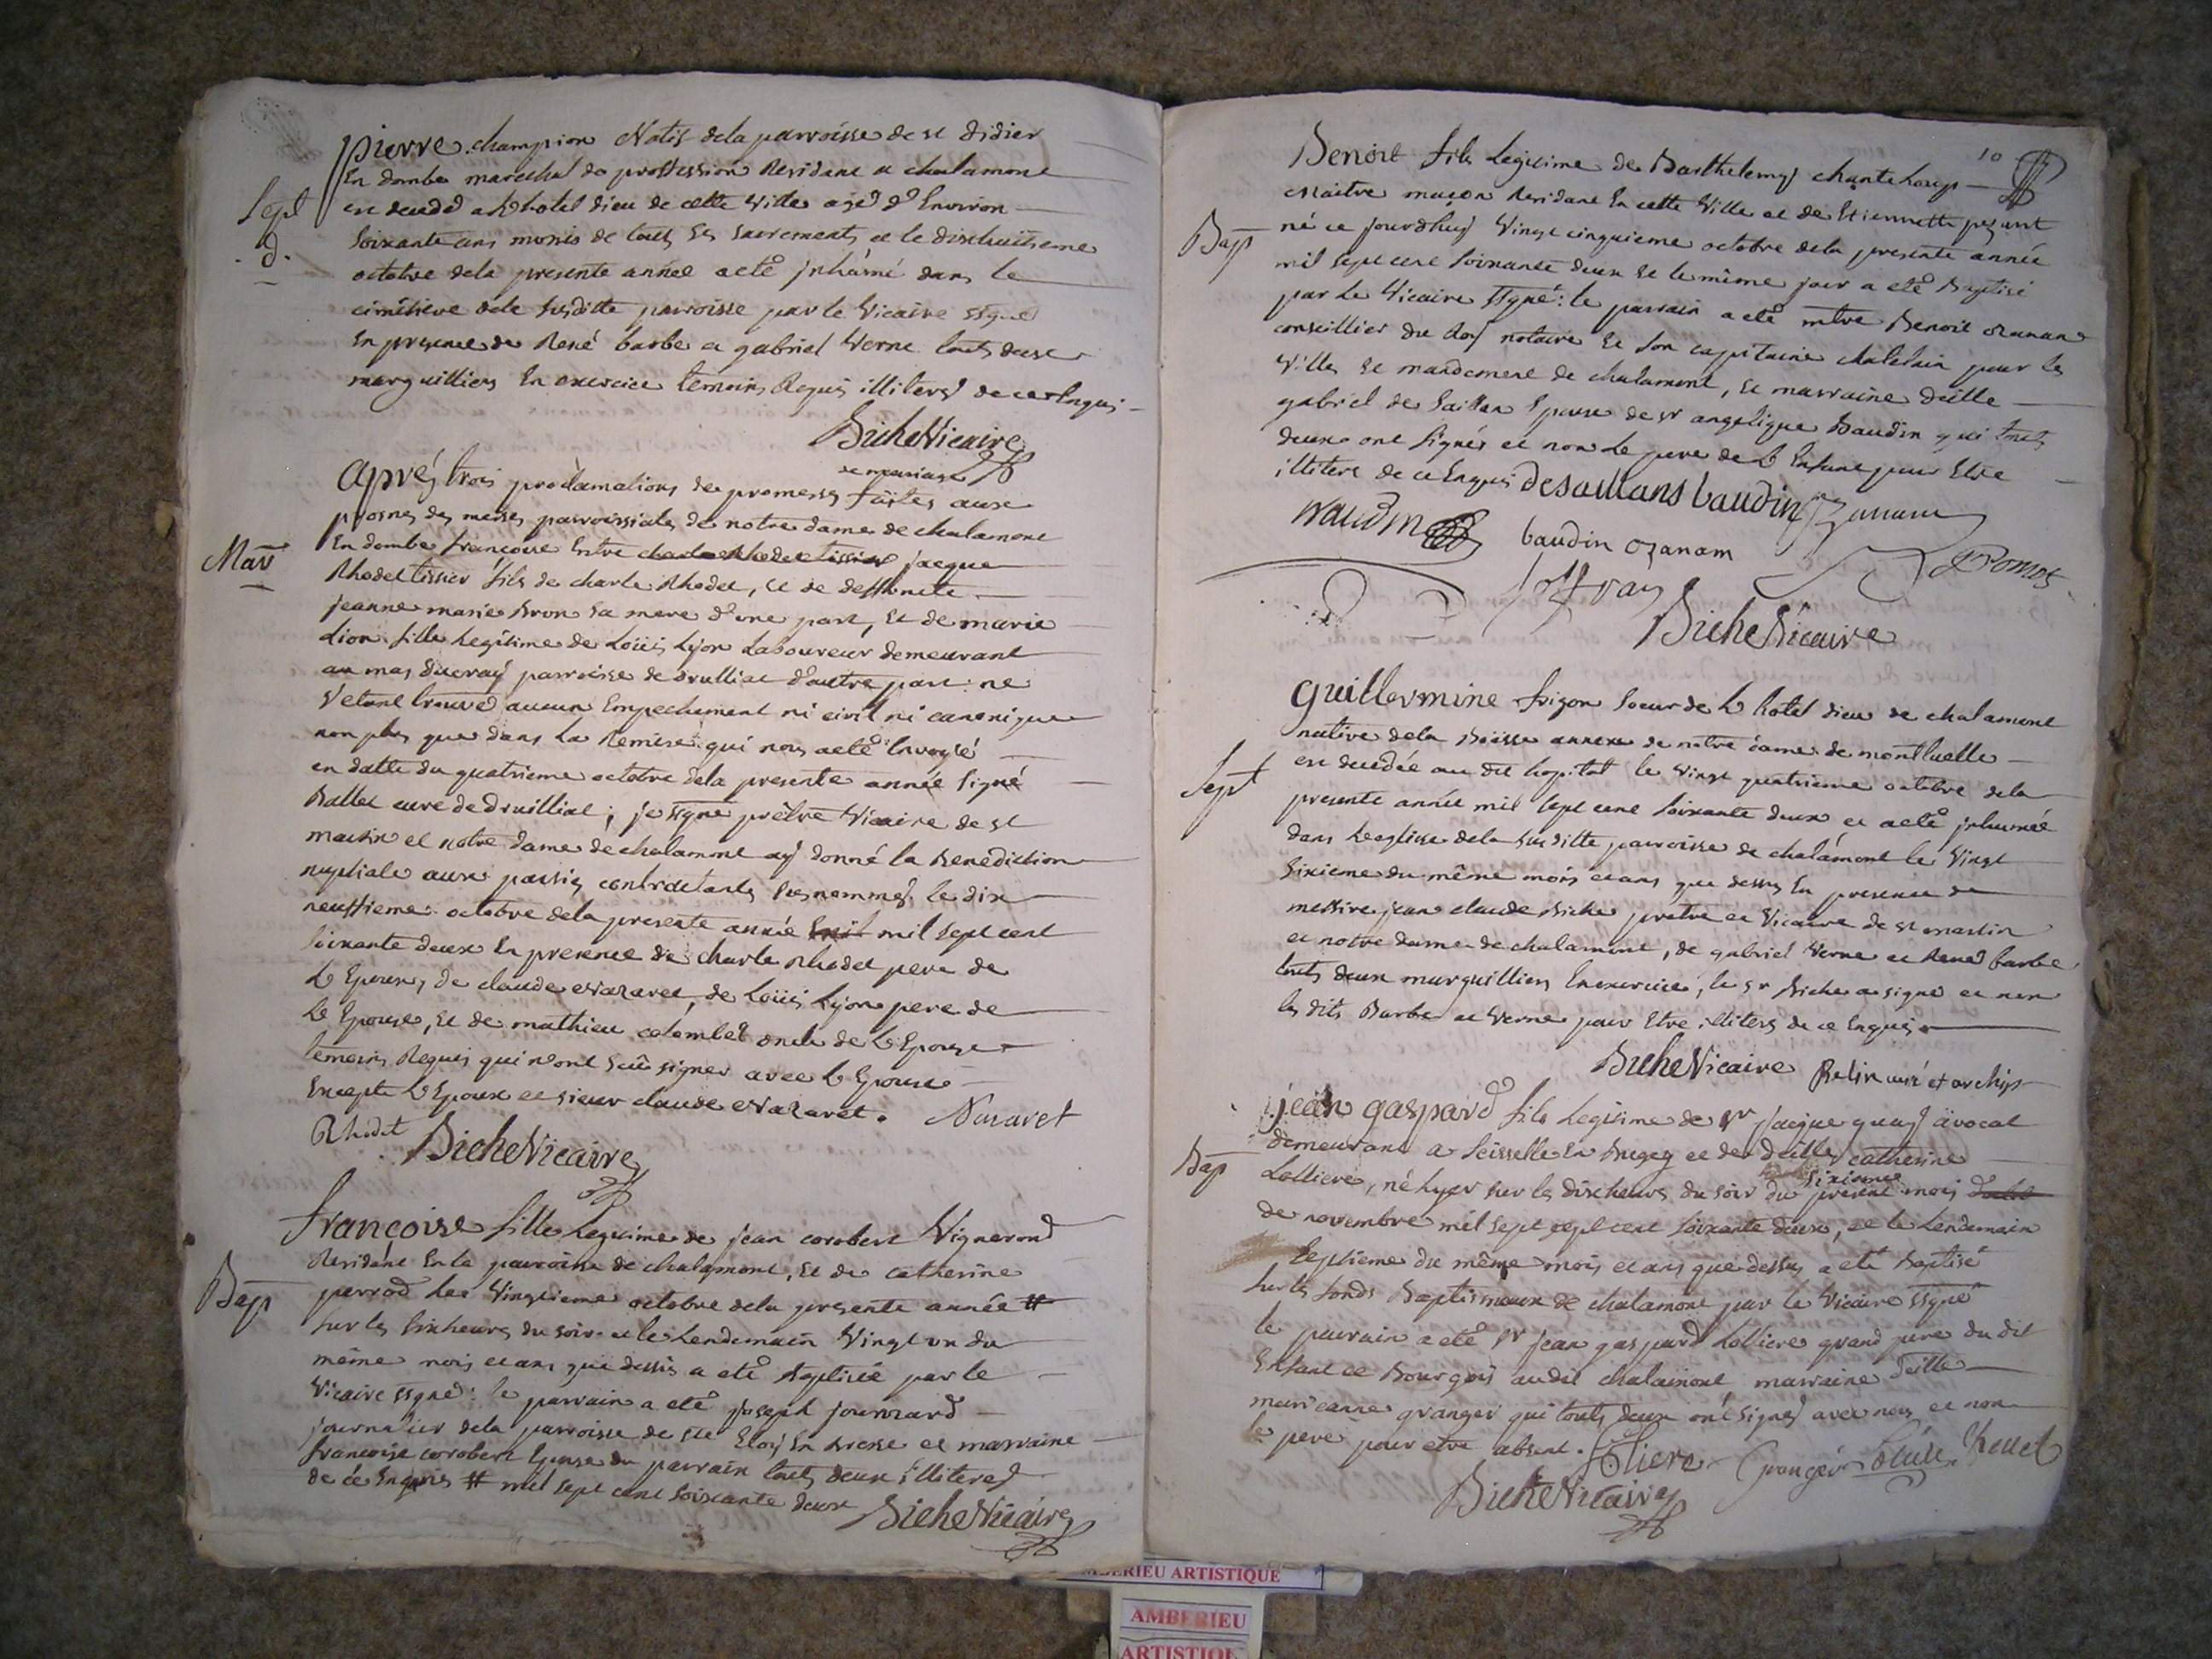 pierre champion Natif dela parroisse de st didier
En dombe marechal de proffession Residant a chalamont
Sept
d.
est decedé a Lhotel dieu de cette ville agé d'Environ
soixante ans munis de touts ses sacrements et le dixhuitieme
octobre dela presente année a eté jnhûmé dans le
cimêtiere dela susditte parroisse par le Vicaire ssgné
En presence de René barbe et gabriel Verne touts deux
marguilliers En exercice temoins Requis illiterés de ce Enquis
Biche Vicaire
de mariage
Aprés trois proclamations de promesses faites aux
prosnes des messes parroissiales de notre dame de chalamont
Mar
En dombe francoise Entre charle Rhodet tissier jacque
Rhodet tissier fils de charle Rhodet, et de deffuncte
jeanne marie Bron sa mere d'une part, et de marie
Lion fille Legitime de Loüis Lyon Laboureur demeurant
au mas ducray parroisse de drulliat d'autre part ne
s'etant trouvé aucun Empechement ni civil ni canonique
non plus que dans La Remise qui nous a eté Envoyé
en datte du quatrieme octobre dela presente année signé
Ballet curé de Druilliat; je ssgne prêtre Vicaire de st
martin et notre dame de chalamont ay donné la Benediction
nuptiale aux parties contractants susnommés le dix
neuffieme octobre dela presente année mil mil sept cent
soixante deux En presence de charle Rhodet pere de
L'Epoux, de claude Nazaret, de Loüis Lyon pere de
L'Epouse, et de mathieu colombet oncle de L'Epouse
temoins Requis qui n'ont sçû signer avec L'Epouse
Excepté L'Epoux et sieur claude Nazaret. Nazaret
Rhodet Biche Vicaire
françoise fille Legitime de jean corobert Vignerond
Residant En la parroisse de chalamont, et de catherine
Bap
perrod née Vingtieme octobre dela presente année #
sur les six heures du soir et le Lendemain Vingt un du
même mois et ans que dessus a eté Baptisée par le
Vicaire ssgné: le parrain a eté joseph jounnard
journalier dela parroisse de ste Eloy En Bresse et marraine
francoise corobert Epouse du parrain touts deux illiterés
de ce Enquis # mil sept cent soixante deux Biche Vicaire
10
Benoit fils Legitime de Barthelemy chanteloup
Maitre maçon Residant En cette Ville et de Etiennette pezant
Bap
né ce jourdhuy Vingt cinquieme octobre dela presente année
mil sept cent soixante deux et le même jour a eté Baptisé
par Le Vicaire ssgné: le parrain a eté mtre Benoit ozanam
conseillier du Roy notaire et son capitaine chatelain pour les
Villes et mandement de chalamont, et marraine delle
gabriel de saillan Epouse de sr angelique Baudin qui touts
deux ont signés et non Le pere de L'Enfant pour Etre
illitere de ce Enquis Desaillans baudin Ozanam
baudin ozanam
Biche Vicaire
Guillermine frizon soeur de L'hotel dieu de chalamont
native dela Boisse annexe de notre dame de montluelle
Sept
est decedée au dit hopital le Vingt quatrieme octobre dela
presente année mil sept cent soixante deux et a eté jnhumée
dans L'eglise dela susditte parroisse de chalâmont le Vingt
sixieme du même mois et ans que dessus En presence de
messire jean claude Biche pretre et Vicaire de st martin
et notre dame de chalamont, de gabriel Verne et René barbe
touts deux marguilliers En exercice, le sr Biche a signé et non
les dits Barbe et Verne pour Etre illiterés de ce Enquis
Biche Vicaire Belin curé et archip
jean gaspard fils Legitime de sr jacque quay avocat
demeurant a seisselle En Bugey et de delle catherine
Bap
sixieme
Lolliere, né hyer sur les dix heures du soir du présent mois
de novembre mil sept sept cent soixante deux, et le Lendemain
septieme du même mois et ans que dessus a eté Baptisé
sur les fonds Baptismaux de chalamont par le Vicaire ssgné
le parrain a eté sr jean gaspard Lolliere grand pere du dit
Enfant et Bourgois au dit chalamont marraine delle
marieanne granger qui touts deux ont signés avec nous et non
le pere pour etre absent. Lolliere Granger
Biche Vicaire
AMBERIEU ARTISTIQUE
AMBERIEU
ARTISTIQUE